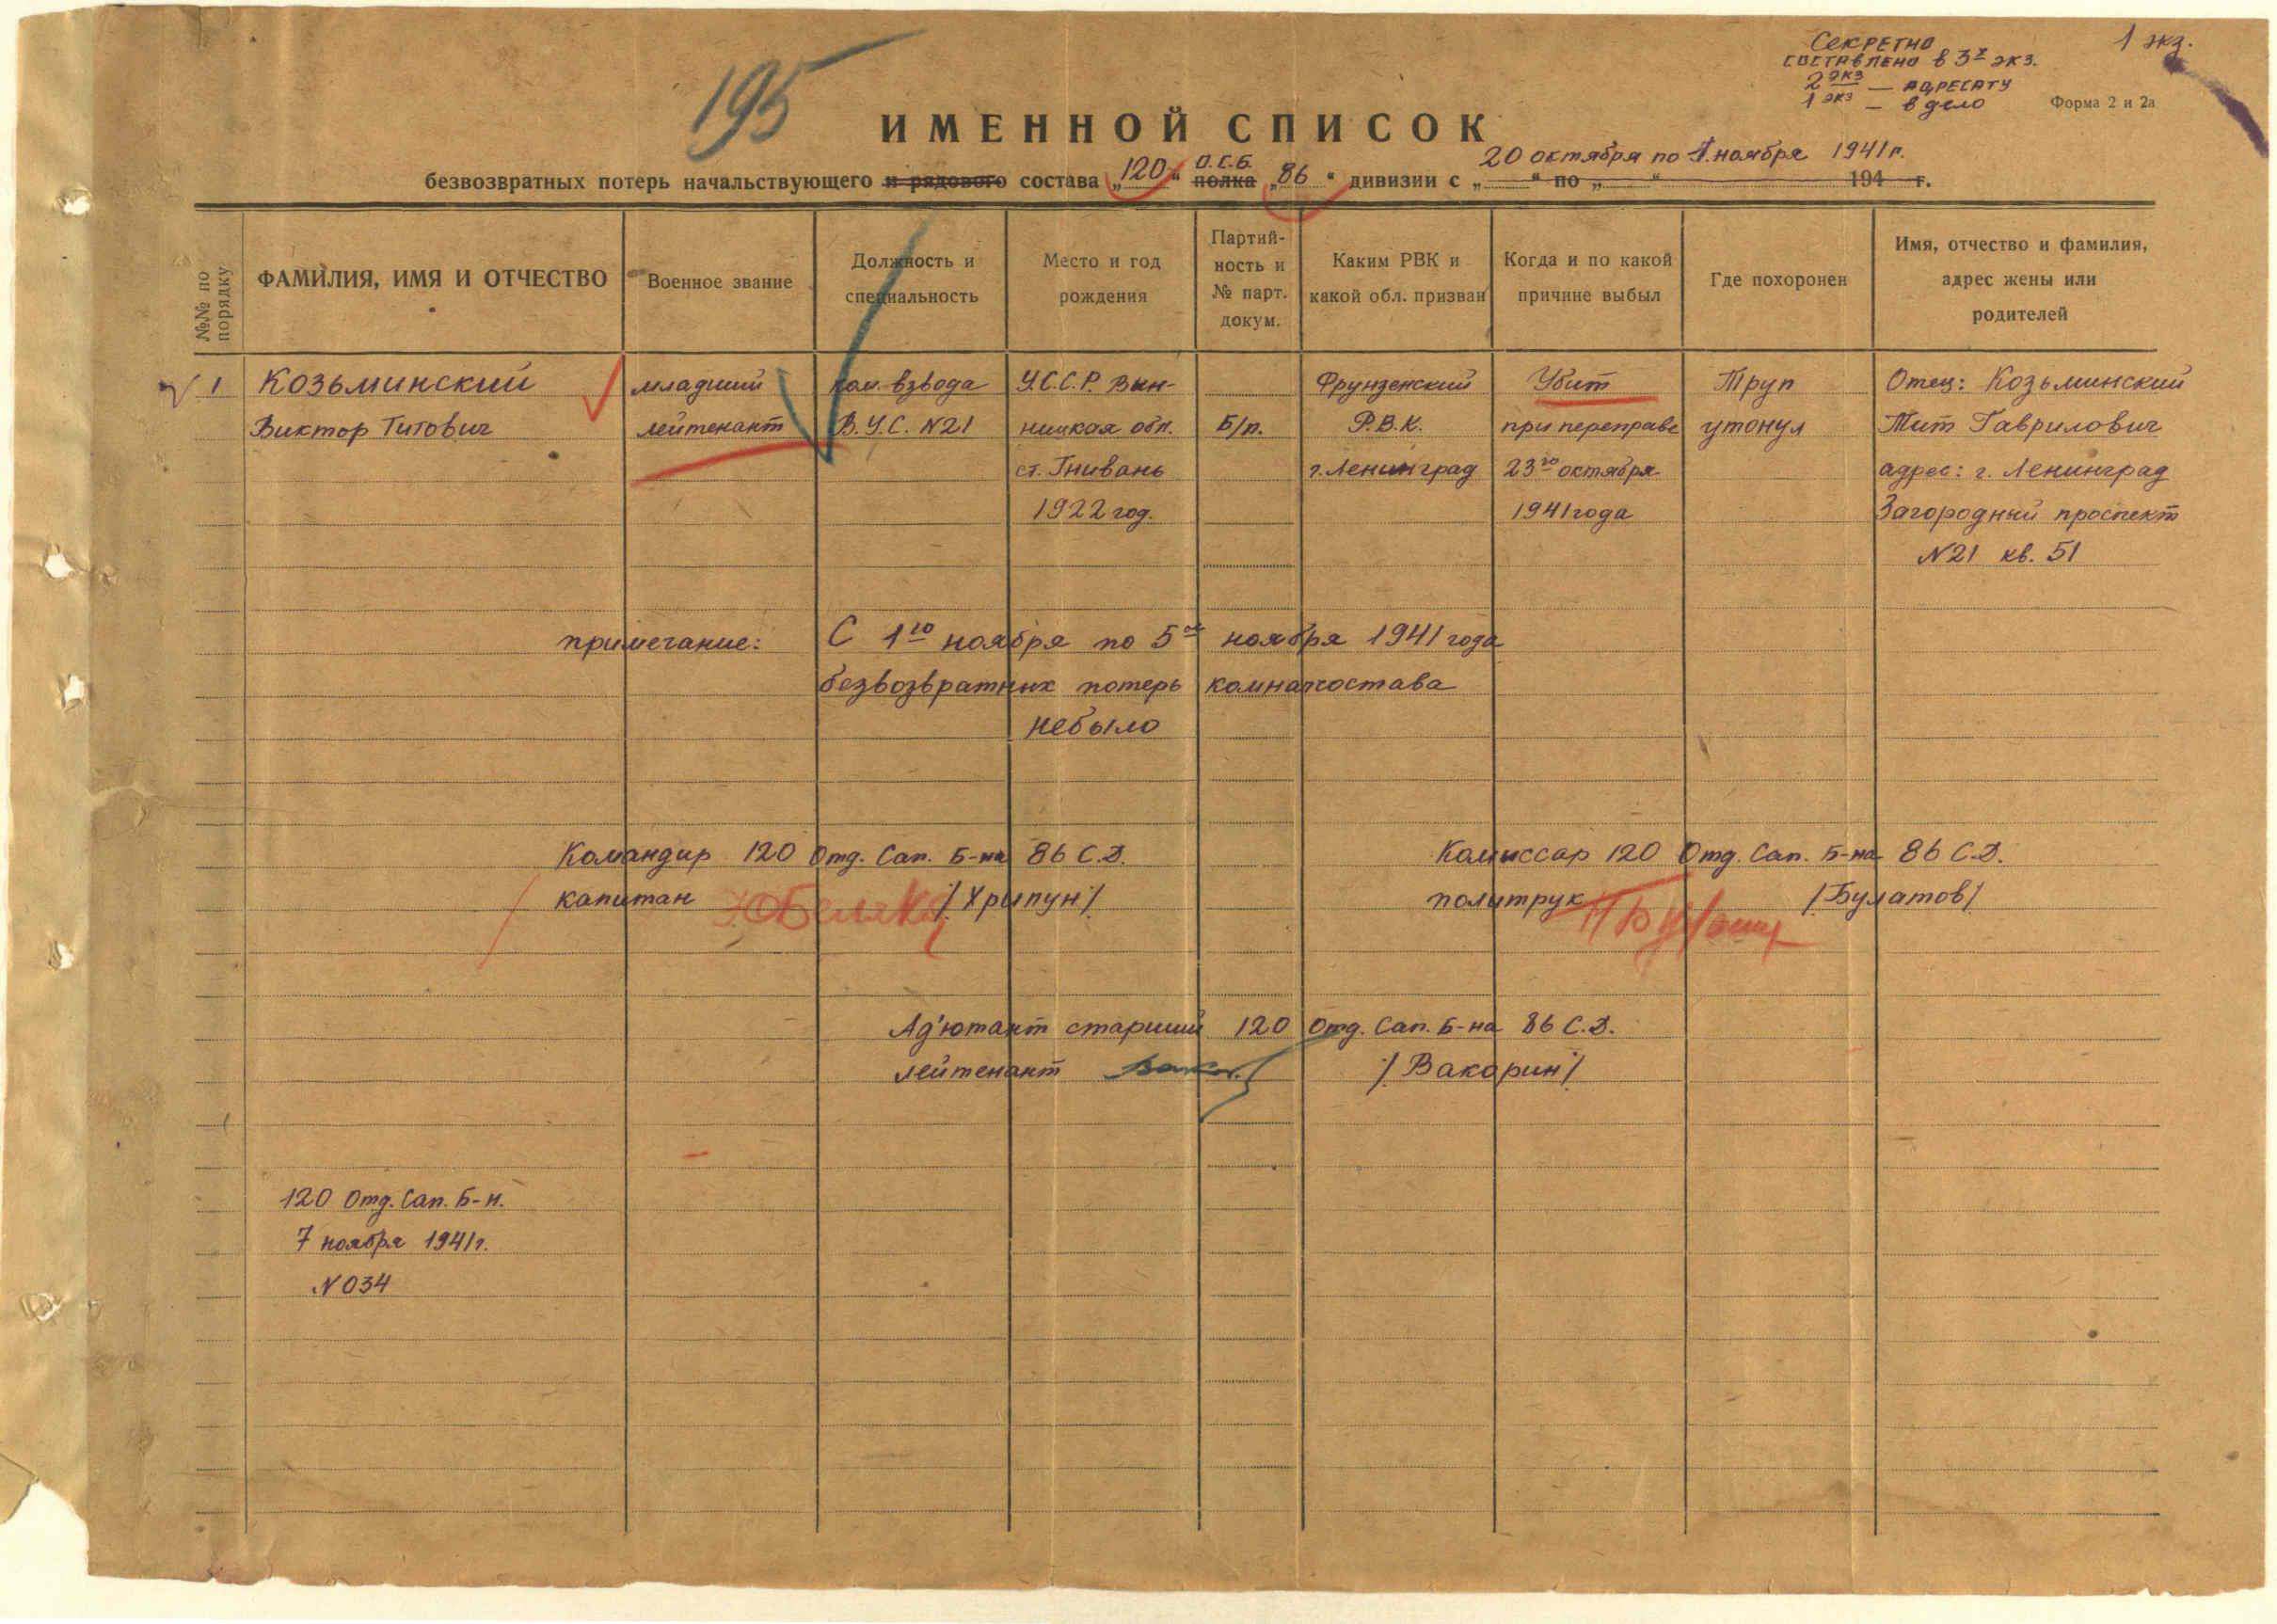 195
Секретно
составлено в 3х экз.
2 экз — адресату
1 экз — в дело
1 экз.
Форма 2 и 2а
ИМЕННОЙ СПИСОК
безвозвратных потерь начальствующего и рядового состава „120“ полка О.С.Б. „86“ дивизии с „ “ по „ “ 194 г.
20 октября по 1 ноября 1941г.
№№ по порядку
ФАМИЛИЯ, ИМЯ И ОТЧЕСТВО
Военное звание
Должность и
специальность
Место и год
рождения
Партий-
ность и
№ парт.
докум.
Каким РВК и
какой обл. призван
Когда и по какой
причине выбыл
Где похоронен
Имя, отчество и фамилия,
адрес жены или
родителей
1 Козьминский младший ком. взвода У.С.С.Р. Вин- Фрунзенский Убит Труп Отец: Козьминский
Виктор Титович лейтенант В.У.С. N21 ницкая обл. Б/п. Р.В.К. при переправе утонул Тит Гаврилович
ст. Гнивань г. Ленинград 23го октября адрес: г. Ленинград
1922 год. 1941 года Загородный проспект
N21 кв. 51
примечание: С 1го ноября по 5ое ноября 1941 года
безвозвратных потерь комначсостава
небыло
Командир 120 Отд. Сап. Б-на 86 С.Д. Комиссар 120 Отд. Сап. Б-на 86 С.Д.
капитан /Хрипун/ политрук /Булатов/
Ад'ютант старший 120 Отд. Сап. Б-на 86 С.Д.
лейтенант /Вакорин/
120 Отд. Сап. Б-н.
7 ноября 1941г.
N034